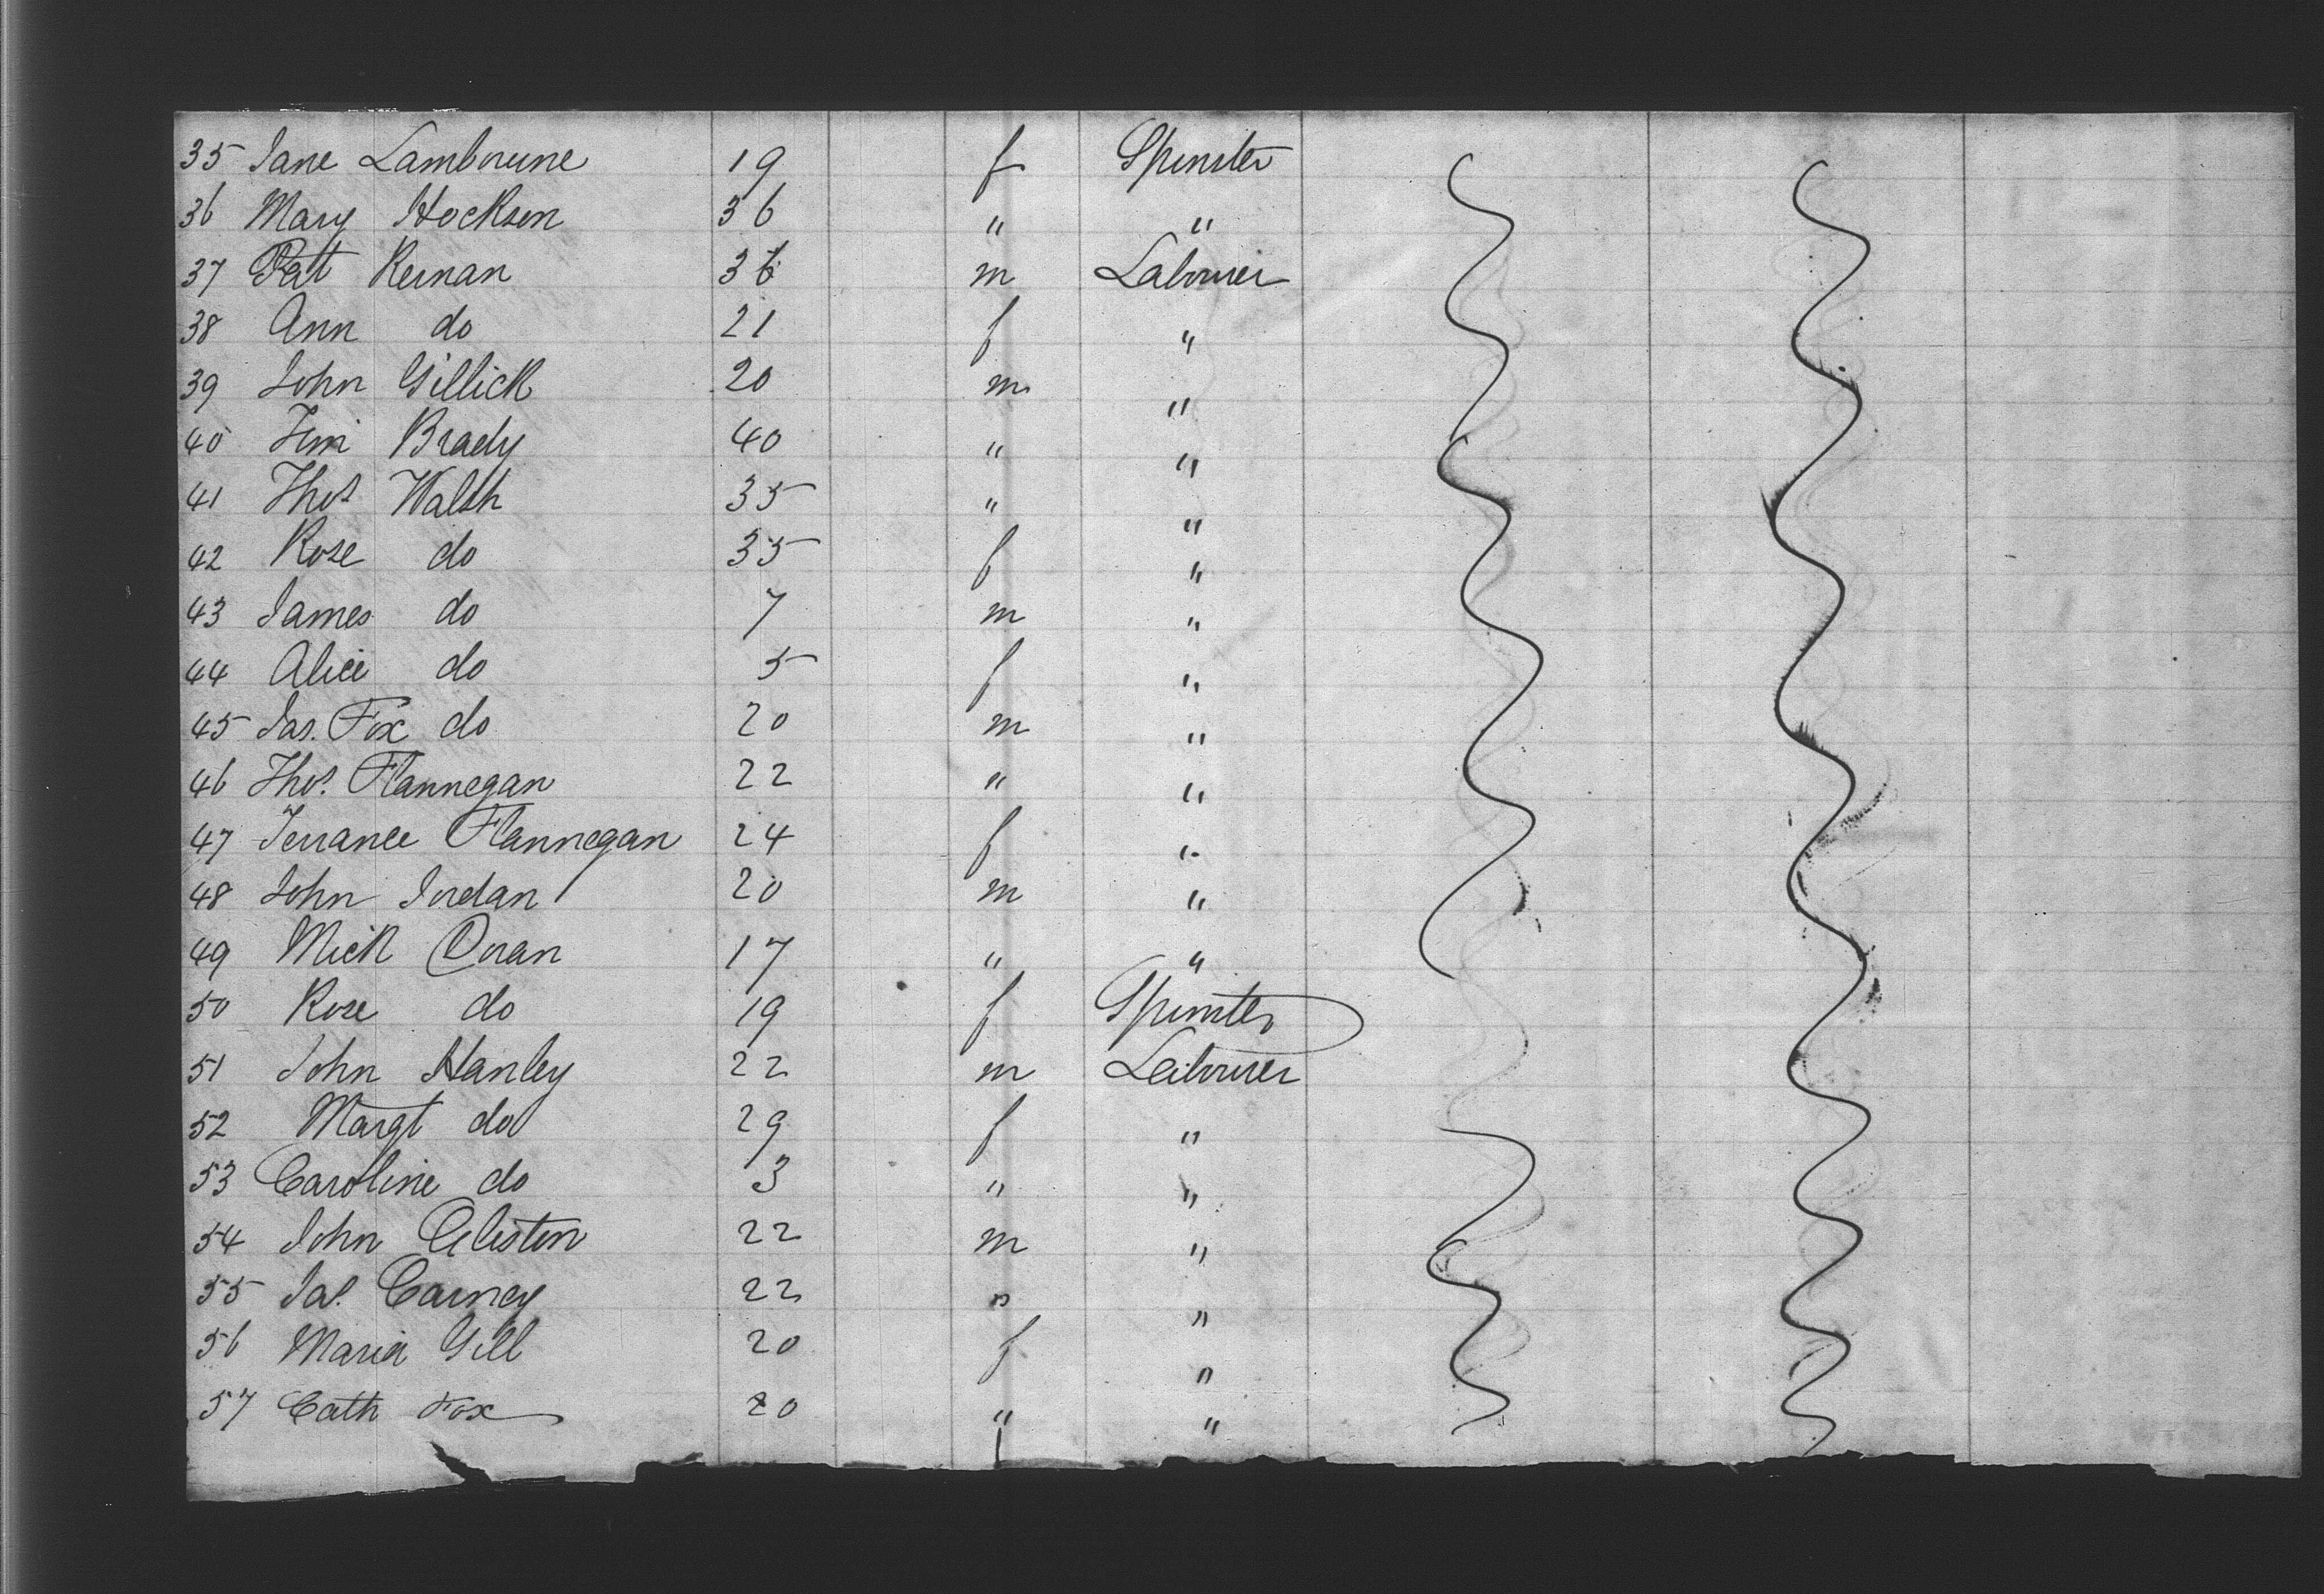 35 Jane Lambourne 19 f Spinster
36 Mary Hockson 36 " "
37 Pat Kernan 36 m Labourer
38 Ann do 21 f "
39 John Gillick 20 m "
40 Jim Brady 40 " "
41 Thos Walsh 35 " "
42 Rose do 35 f "
43 James do 7 m "
44 Alice do 5 f "
45 Jas. Fox do 20 m "
46 Thos. Flannegan 22 " "
47 Terrance Flannegan 24 f "
48 John Jordan 20 m "
49 Mick Doran 17 " "
50 Rose do 19 f Spinster
51 John Hanley 22 m Labourer
52 Margt do 29 f "
53 Caroline do 3 " "
54 John 22 m "
55 Jas. Carney 22 " "
56 Maria Gill 20 f "
57 Cath Fox 20 " "